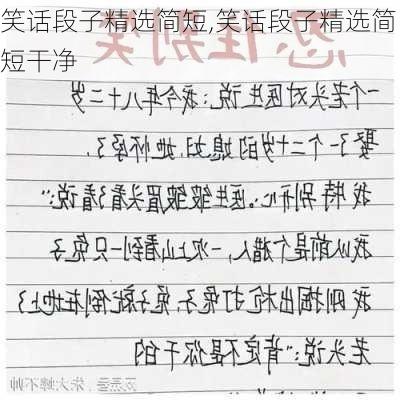 笑话段子精选简短,笑话段子精选简
短干净
忍住别笑
一个老头对医生说:我今年八十二岁
娶了一个二十岁的媳妇,她怀孕了,
我特别开心。医生皱眉头看了看说:“
我以前是个猎人,一次上山看到一只兔子
我刚掏出枪打兔子,兔子就倒在地上了
老头说:“肯定不是你干的